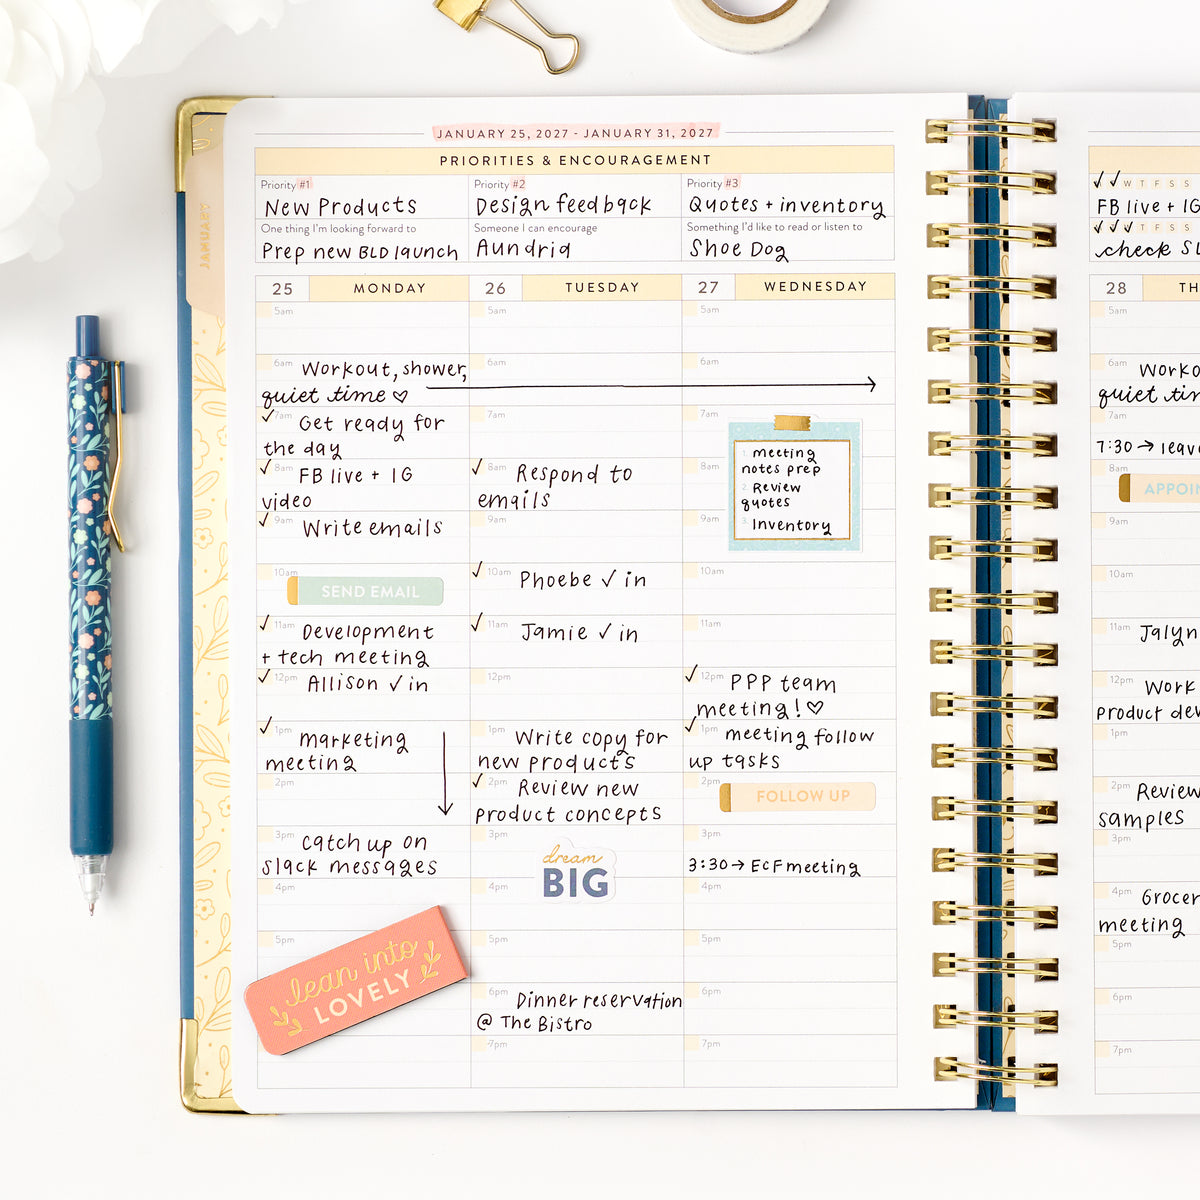 JANUARY 25, 2027 - JANUARY 31, 2027
PRIORITIES & ENCOURAGEMENT
Priority #1
New Products
One thing I'm looking forward to
Prep new BLD launch
Priority #2
Design feedback
Someone I can encourage
Aundria
Priority #3
Quotes + inventory
Something I'd like to read or listen to
Shoe Dog
JANUARY
25 MONDAY
5am
6am Workout, shower,
quiet time ♡
✓ 7am Get ready for
the day
✓ 8am FB live + IG
video
✓ 9am Write emails
10am
SEND EMAIL
✓ 11am Development
+ tech meeting
✓ 12pm Allison ✓ in
✓ 1pm marketing
meeting
2pm
3pm catch up on
slack messages
4pm
5pm
lean into
LOVELY
26 TUESDAY
5am
6am
7am
✓ 8am Respond to
emails
9am
✓ 10am Phoebe ✓ in
✓ 11am Jamie ✓ in
12pm
1pm Write copy for
new products
✓ 2pm Review new
product concepts
3pm
dream
BIG
4pm
5pm
6pm Dinner reservation
@ The Bistro
7pm
27 WEDNESDAY
5am
6am
7am
8am
1. meeting
notes prep
2. Review
quotes
3. Inventory
9am
10am
11am
✓ 12pm PPP team
meeting! ♡
✓ 1pm meeting follow
up tasks
2pm
FOLLOW UP
3pm
3:30 → ECF meeting
4pm
5pm
6pm
7pm
✓ ✓ W T F S S
FB live + IG
✓ ✓ ✓ T F S S
check SL
28 TH
5am
6am Worko
quiet tim
7am
7:30 → leav
8am
APPOIN
9am
10am
11am Jalyn
12pm Work
product dev
1pm
2pm Review
samples
3pm
4pm Grocer
meeting
5pm
6pm
7pm